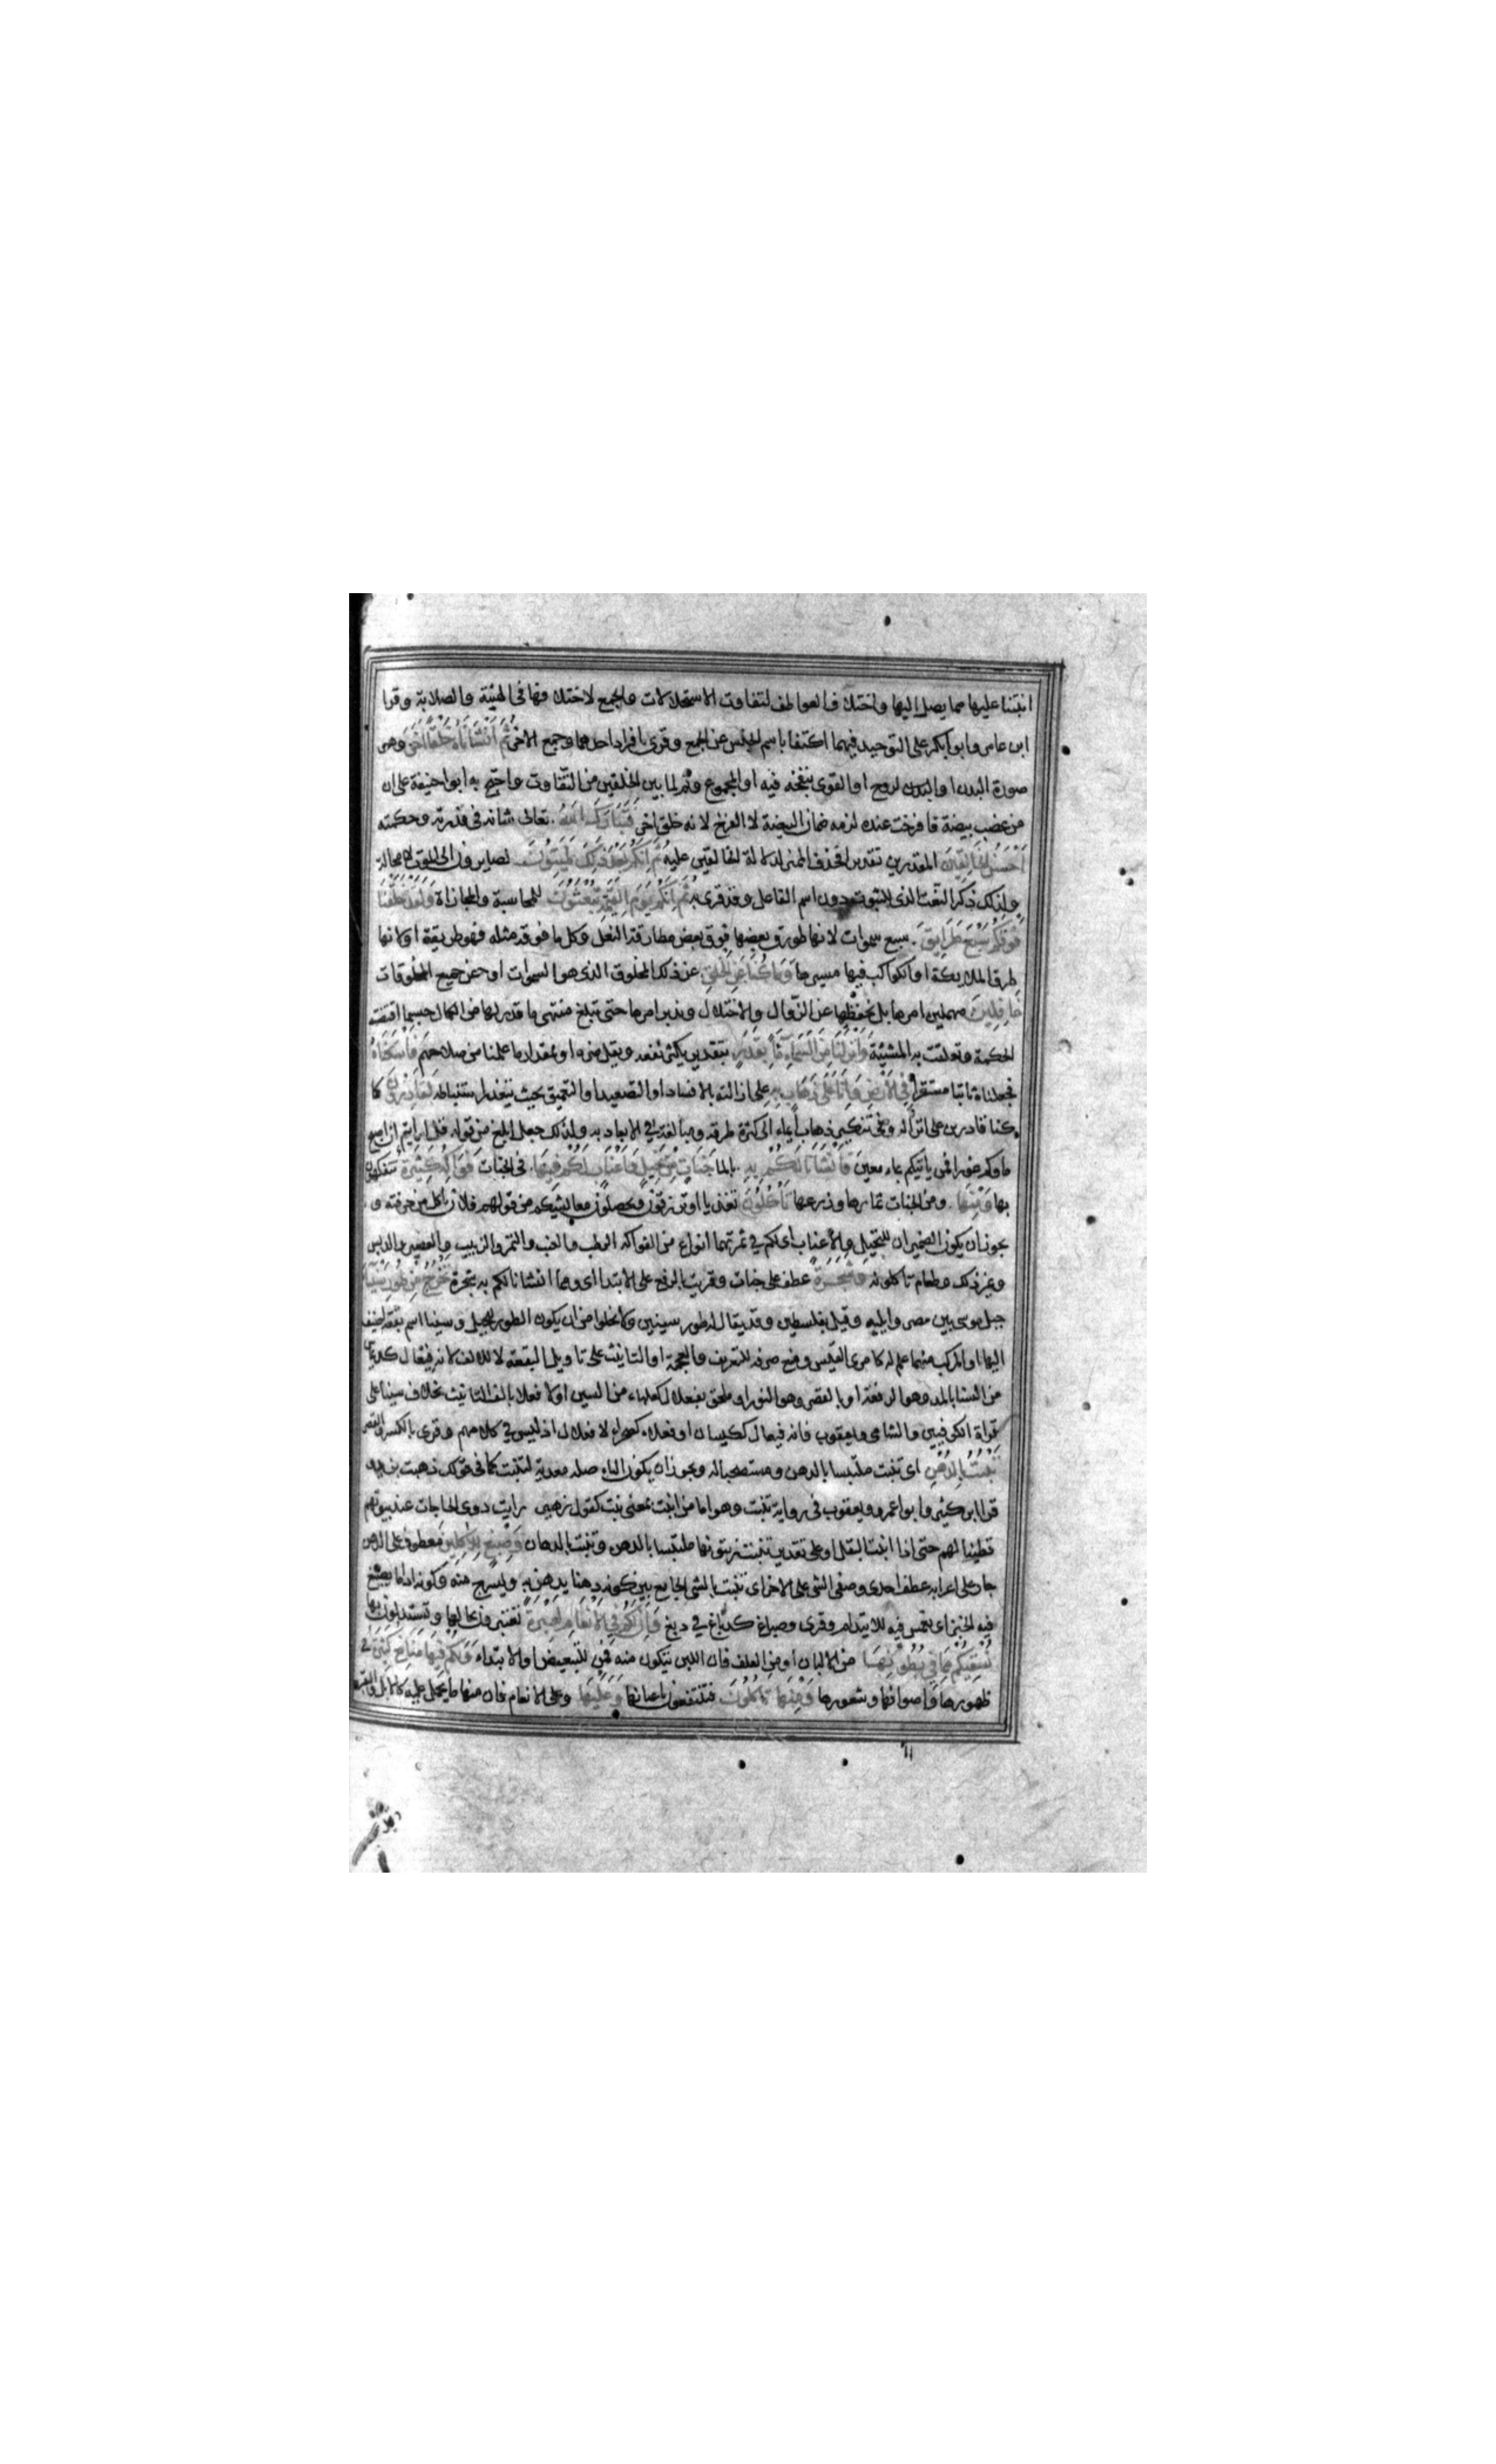 انبتنا عليها مما يصل اليها واختلاف العواطف لتفاوت الاستحالات والجمع لاختلافها في الهيئة والصلابة وقرا
ابن عامر وابو بكر على التوحيد فيهما اكتفا باسم الجنس عن الجمع وقرى بافراد احدهما وجمع الاخر ثُمَّ أَنْشَأْنَاهُ خَلْقًا آخَرَ وهى
صورة البدن او البدن لروح او القوى بنفخه فيه او المجموع وثم لما بين الخلقين من التفاوت واحتج به ابو حنيفة على ان
من غصب بيضة فافرخت عنده لزمه ضمان البيضة لا الفرخ لانه خلق اخر فَتَبَارَكَ اللهُ. تعالى شانه فى قدرته وحكمته
أَحْسَنُ الْخَالِقِينَ المقدرين تقديرا فحذف المميز لدلالة الخالقين عليه ثُمَّ إِنَّكُمْ بَعْدَ ذَلِكَ لَمَيِّتُونَ لصايرون الى الموت لا محالة
ولذلك ذكر النعت الذى للثبوت دون اسم الفاعل وقد قرى به ثُمَّ إِنَّكُمْ يَوْمَ الْقِيمَةِ تُبْعَثُونَ للمحاسبة والمجازاة وَلَقَدْ خَلَقْنَا
فَوْقَكُمْ سَبْعَ طَرَايِقَ. سبع سموات لانها طورق بعضها فوق بعض مطارقة النعل وكل ما فوقه مثله فهو طريقة او لانها
طرق الملايكة او الكواكب فيها مسيرها وَمَا كُنَّا عَنِ الْخَلْقِ عن ذلك المخلوق الذى هو السموات او عن جميع المخلوقات
غَافِلِينَ مهملين امرها بل نحفظها عن الزوال والاختلال وندبر امرها حتى تبلغ منتهى ما قدر لها من الكمال حسبما اقتضت
الحكمة وتعلقت به المشيئة وَأَنْزَلْنَا مِنَ السَّمَاءِ مَاءً بِقَدَرٍ بتقدير يكثر نفعه ويقل ضره او بمقدار ما علمنا من صلاحهم فَأَسْكَنَّاهُ
فجعلناه ثابتا مستقرا فِي الْأَرْضِ وَإِنَّا عَلَى ذَهَابٍ بِهِ على ازالته بالافساد او التصعيد او التعميق بحيث يتعذر استنباطه لَقَادِرُونَ كما
كنا قادرين على انزاله وفى تنكير ذهاب ايماء الى كثرة طرقه ومبالغة فى الايعاد به ولذلك جعل ابلغ من قوله قل ارايتم ان اصبح
ماوكم غورا فمن ياتيكم بماء معين فَأَنْشَأْنَا لَكُمْ بِهِ. بالما جَنَّاتٍ مِنْ نَخِيلٍ وَأَعْنَابٍ لَكُمْ فِيهَا. فى الجنات فَوَاكِهُ كَثِيرَةٌ تتفكهون
بها وَمِنْهَا. ومن الجنات ثمارها وزرعها تَأْكُلُونَ تغذيا او ترزقون وتحصلون معايشكم من قولهم فلان ياكل من حرفته و
يجوز ان يكون الضميران للنخيل والاعناب اى لكم فى ثمرتهما انواع من الفواكه الرطب والعنب والتمر والزبيب والعصير والدبس
وغير ذلك وطعام تاكلونه وَشَجَرَةً عطف على جنات وقريت بالرفع على الابتدا اى ومما انشانا لكم به شجرة تَخْرُجُ مِنْ طُورِ سَيْنَاءَ
جبل موسى بين مصر وايليه وقيل بفلسطين وقد يقال له طور سينين ولا يخلوا من ان يكون الطور للجبل وسينا اسم بقعة اضيف
اليها او المركب منهما علم له كامرى القيس ومنع صرفه للتعريف والعجمة او التانيث على تاويل البقعة لا للالف لانه فيعال كديماس
من السنا بالمد وهو الرفعة او بالقصر وهو النور او ملحق بفعلال كعلباء من السين اذ لا فعلا بالف التانيث بخلاف سينا على
قراة الكوفيين والشامى ويعقوب فانه فيعال ككيسان او فعلاء كصحراء لا فعلال اذ ليس فى كلامهم وقرى بالكسر والقصر
تَنْبُتُ بِالدُّهْنِ اى تنبت ملتبسا بالدهن ومستصحبا له ويجوز ان يكون الباء صلة معدية لتنبت كما فى قولك ذهبت بزيد
قرا ابن كثير وابو عمرو ويعقوب فى رواية تنبت وهو اما من انبت بمعنى نبت كقول زهير رايت ذوى الحاجات عند بيوتهم
قطينا لهم حتى اذا انبت البقل او على تقدير تنبت زيتونها ملتبسا بالدهن وتنبت بالدهان وَصِبْغٍ لِلْآكِلِينَ معطوف على الدهن
جار على اعرابه عطف احدى وصفى الشى على الاخر اى تنبت بالشى الجامع بين كونه دهنا يدهن به ويسرج منه وكونه اداما يصبغ
فيه الخبز اى يغمس فيه للايتدام وقرى وصباغ كدباغ فى دبغ وَإِنَّ لَكُمْ فِي الْأَنْعَامِ لَعِبْرَةً تعتبرون بحالها وتستدلون بها
نُسْقِيكُمْ مِمَّا فِي بُطُونِهَا من الالبان او من العلف فان اللبن يتكون منه فمن للتبعيض او الابتداء وَلَكُمْ فِيهَا مَنَافِعُ كَثِيرَةٌ فى
ظهورها واصوافها وشعورها وَمِنْهَا تَأْكُلُونَ فتنتفعون باعيانها وَعَلَيْهَا وعلى الانعام فان منها ما يحمل عليه كالابل والبقر